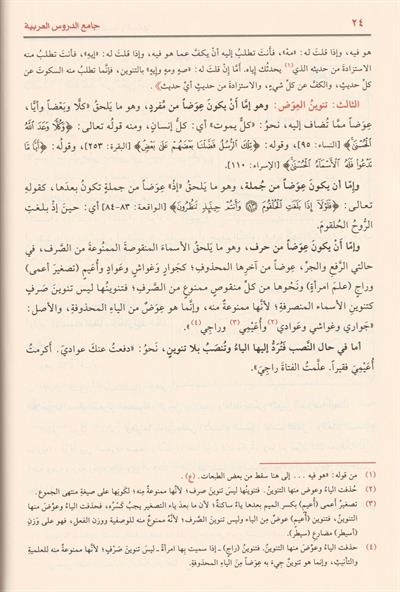 ٢٤ جامع الدروس العربية
هو فيه، وإذا قلتَ له: «مهْ»، فأنت تطلبُ إليه أنْ يكفَّ عما هو فيه، وإذا قلتَ له: «إيهِ»، فأنتَ تطلُب منه
الاستزادةَ من حديثه الذي(١) يحدثُك إياه. أمَّا إنْ قلتَ له: «صهٍ ومهٍ وإيهٍ» بالتنوين، فإنَّما تطلبُ منه السكوتَ عن
كلِّ حديثٍ، والكفَّ عن كلِّ شيءٍ، والاستزادةَ من حديثِ أيِّ حديثٍ.
الثالث: تنوينُ العِوَض: وهو إمَّا أنْ يكونَ عِوَضاً من مُفرَدٍ، وهو ما يَلحقُ «كلًّا وبَعْضاً وأيًّا،
عِوَضاً ممَّا تُضاف إليه، نحوُ: «كلٌّ يموت» أي: كلُّ إنسانٍ، ومنه قولُه تعالى: ﴿وَكُلًّا وَعَدَ اللَّهُ
الْحُسْنَى﴾ [النساء: ٩٥]، وقوله: ﴿تِلْكَ الرُّسُلُ فَضَّلْنَا بَعْضَهُمْ عَلَى بَعْضٍ﴾ [البقرة: ٢٥٣]، وقولُه: ﴿أَيًّا مَا
تَدْعُوا فَلَهُ الْأَسْمَاءُ الْحُسْنَى﴾ [الإسراء: ١١٠].
وإمَّا أن يكونَ عِوَضاً من جُملة، وهو ما يَلحقُ «إذْ» عِوَضاً من جملةٍ تكونُ بعدَها، كقولهِ
تعالى: ﴿فَلَوْلَا إِذَا بَلَغَتِ الْحُلْقُومَ ۝ وَأَنْتُمْ حِينَئِذٍ تَنْظُرُونَ﴾ [الواقعة: ٨٣-٨٤] أي: حينَ إذْ بلغتِ
الرُّوحُ الحُلقومَ.
وإمَّا أنْ يكونَ عِوَضاً من حرف، وهو ما يَلحَقُ الأسماءَ المنقوصةَ الممنُوعةَ من الصَّرف، في
حالتي الرَّفع والجرِّ، عِوَضاً من آخرِها المحذوفِ؛ كجَوارٍ وغَواشٍ وعَوادٍ وأُعَيمٍ (تصغيرَ أعمى)
وراجٍ (علمَ امرأةٍ) ونَحوِها من كلِّ منقوصٍ ممنوعٍ من الصَّرف؛ فتنوينُها ليس تنوينَ صَرفٍ
كتنوينِ الأسماءِ المنصرفةِ؛ لأنَّها ممنوعةٌ منه، وإنَّما هو عِوَضٌ من الياءِ المحذوفةِ، والأصل:
«جَواري وغواشي وعَوادي(٢) وأُعَيْمِي(٣) وراجي(٤)».
أما في حال النَّصب فتُرَدُّ إليها الياءُ وتُنصَبُ بلا تنوينٍ، نَحوُ: «دفعتُ عنكَ عواديَ. أكرمتُ
أُعَيْمِيَ فقيراً. علَّمتُ الفتاةَ راجِيَ».
(١) من قوله: «هو فيه ... إلى هنا سقط من بعض الطبعات. (ع).
(٢) حُذفت الياءُ وعوض منها التنوينُ. فتنوينُها ليسَ تنوينَ صرف؛ لكَونِها على صيغةِ منتهى الجموع.
(٣) تصغيرُ أعمى: أُعَيْمي، بكسر الميم بعدَها ياءٌ ساكنةٌ؛ لأن ما بعدَ ياءِ التصغيرِ يجبُ كَسْرُه، فحذفت الياءُ وعُوِّضَ منها
التنوينُ، فتنوينُ (أُعيمٍ) عوضٌ مِن الياء وليسَ تنوينَ الصَّرف؛ لأنَّهُ ممنوعٌ منه للوصفية ووزن الفعل، فهو على وَزنِ
(أُسيطر) مضارع (سيطر).
(٤) حذفت الياءُ وعُوِّضَ منها التنوينُ. فتنوينُ (راجٍ) - إذا سميت بها امرأةً - ليسَ تنوينَ صَرْفٍ؛ لأنَّها ممنوعةٌ منه للعلميةِ
والتأنيث، وإنما هو تنوينٌ جِيءَ به عِوَضاً مِنَ الياءِ المحذوفةِ.